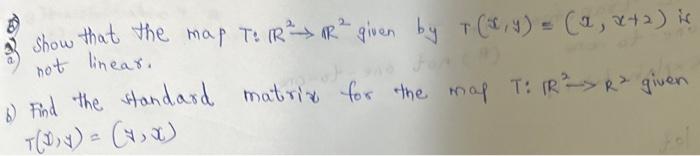 a) Show that the map T: ℝ² → ℝ² given by T(x, y) = (x, x+2) is
not linear.
b) Find the standard matrix for the map T: ℝ² → ℝ² given
T(x, y) = (y, x)